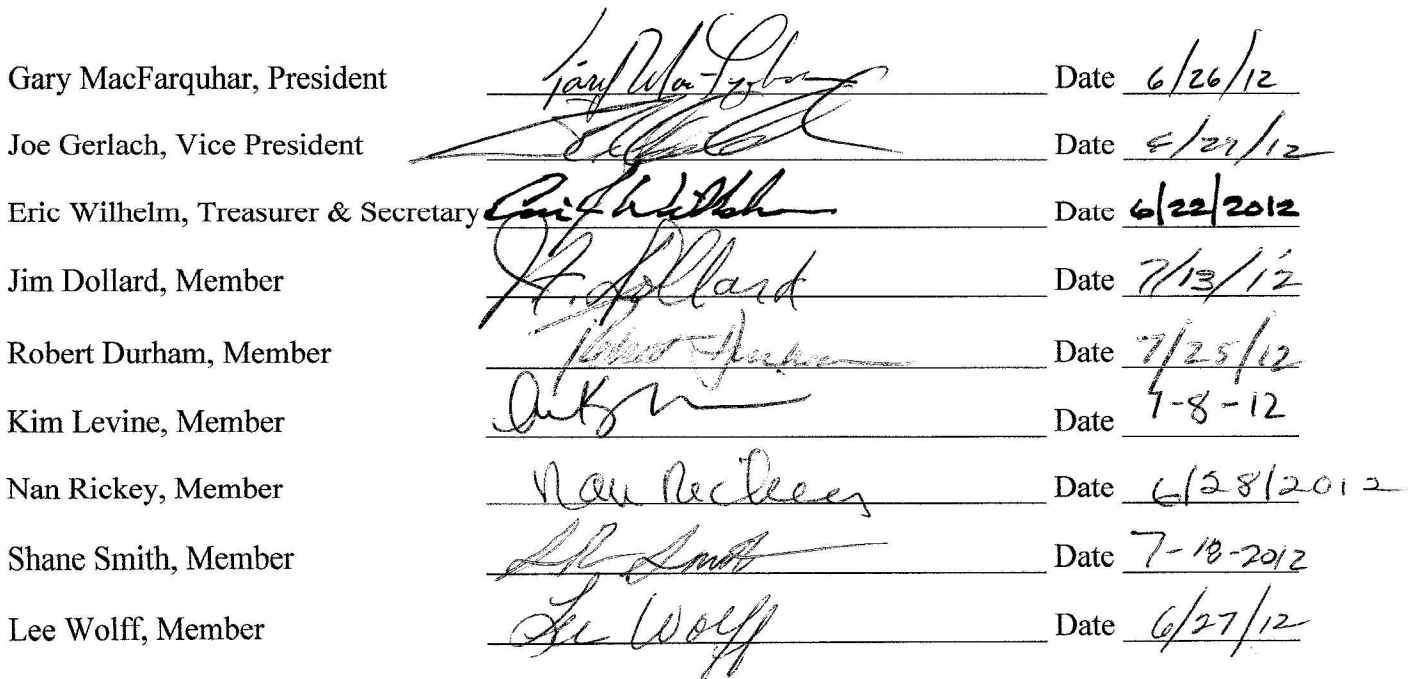 Gary MacFarquhar, President Date 6/26/12
Joe Gerlach, Vice President Date /12
Eric Wilhelm, Treasurer & Secretary Date 6/22/2012
Jim Dollard, Member J. Dollard Date 7/13/12
Robert Durham, Member Robert Durham Date 7/25/12
Kim Levine, Member Date 7-8-12
Nan Rickey, Member Nan Rickey Date 6/28/2012
Shane Smith, Member Smith Date 7-18-2012
Lee Wolff, Member Lee Wolff Date 6/27/12